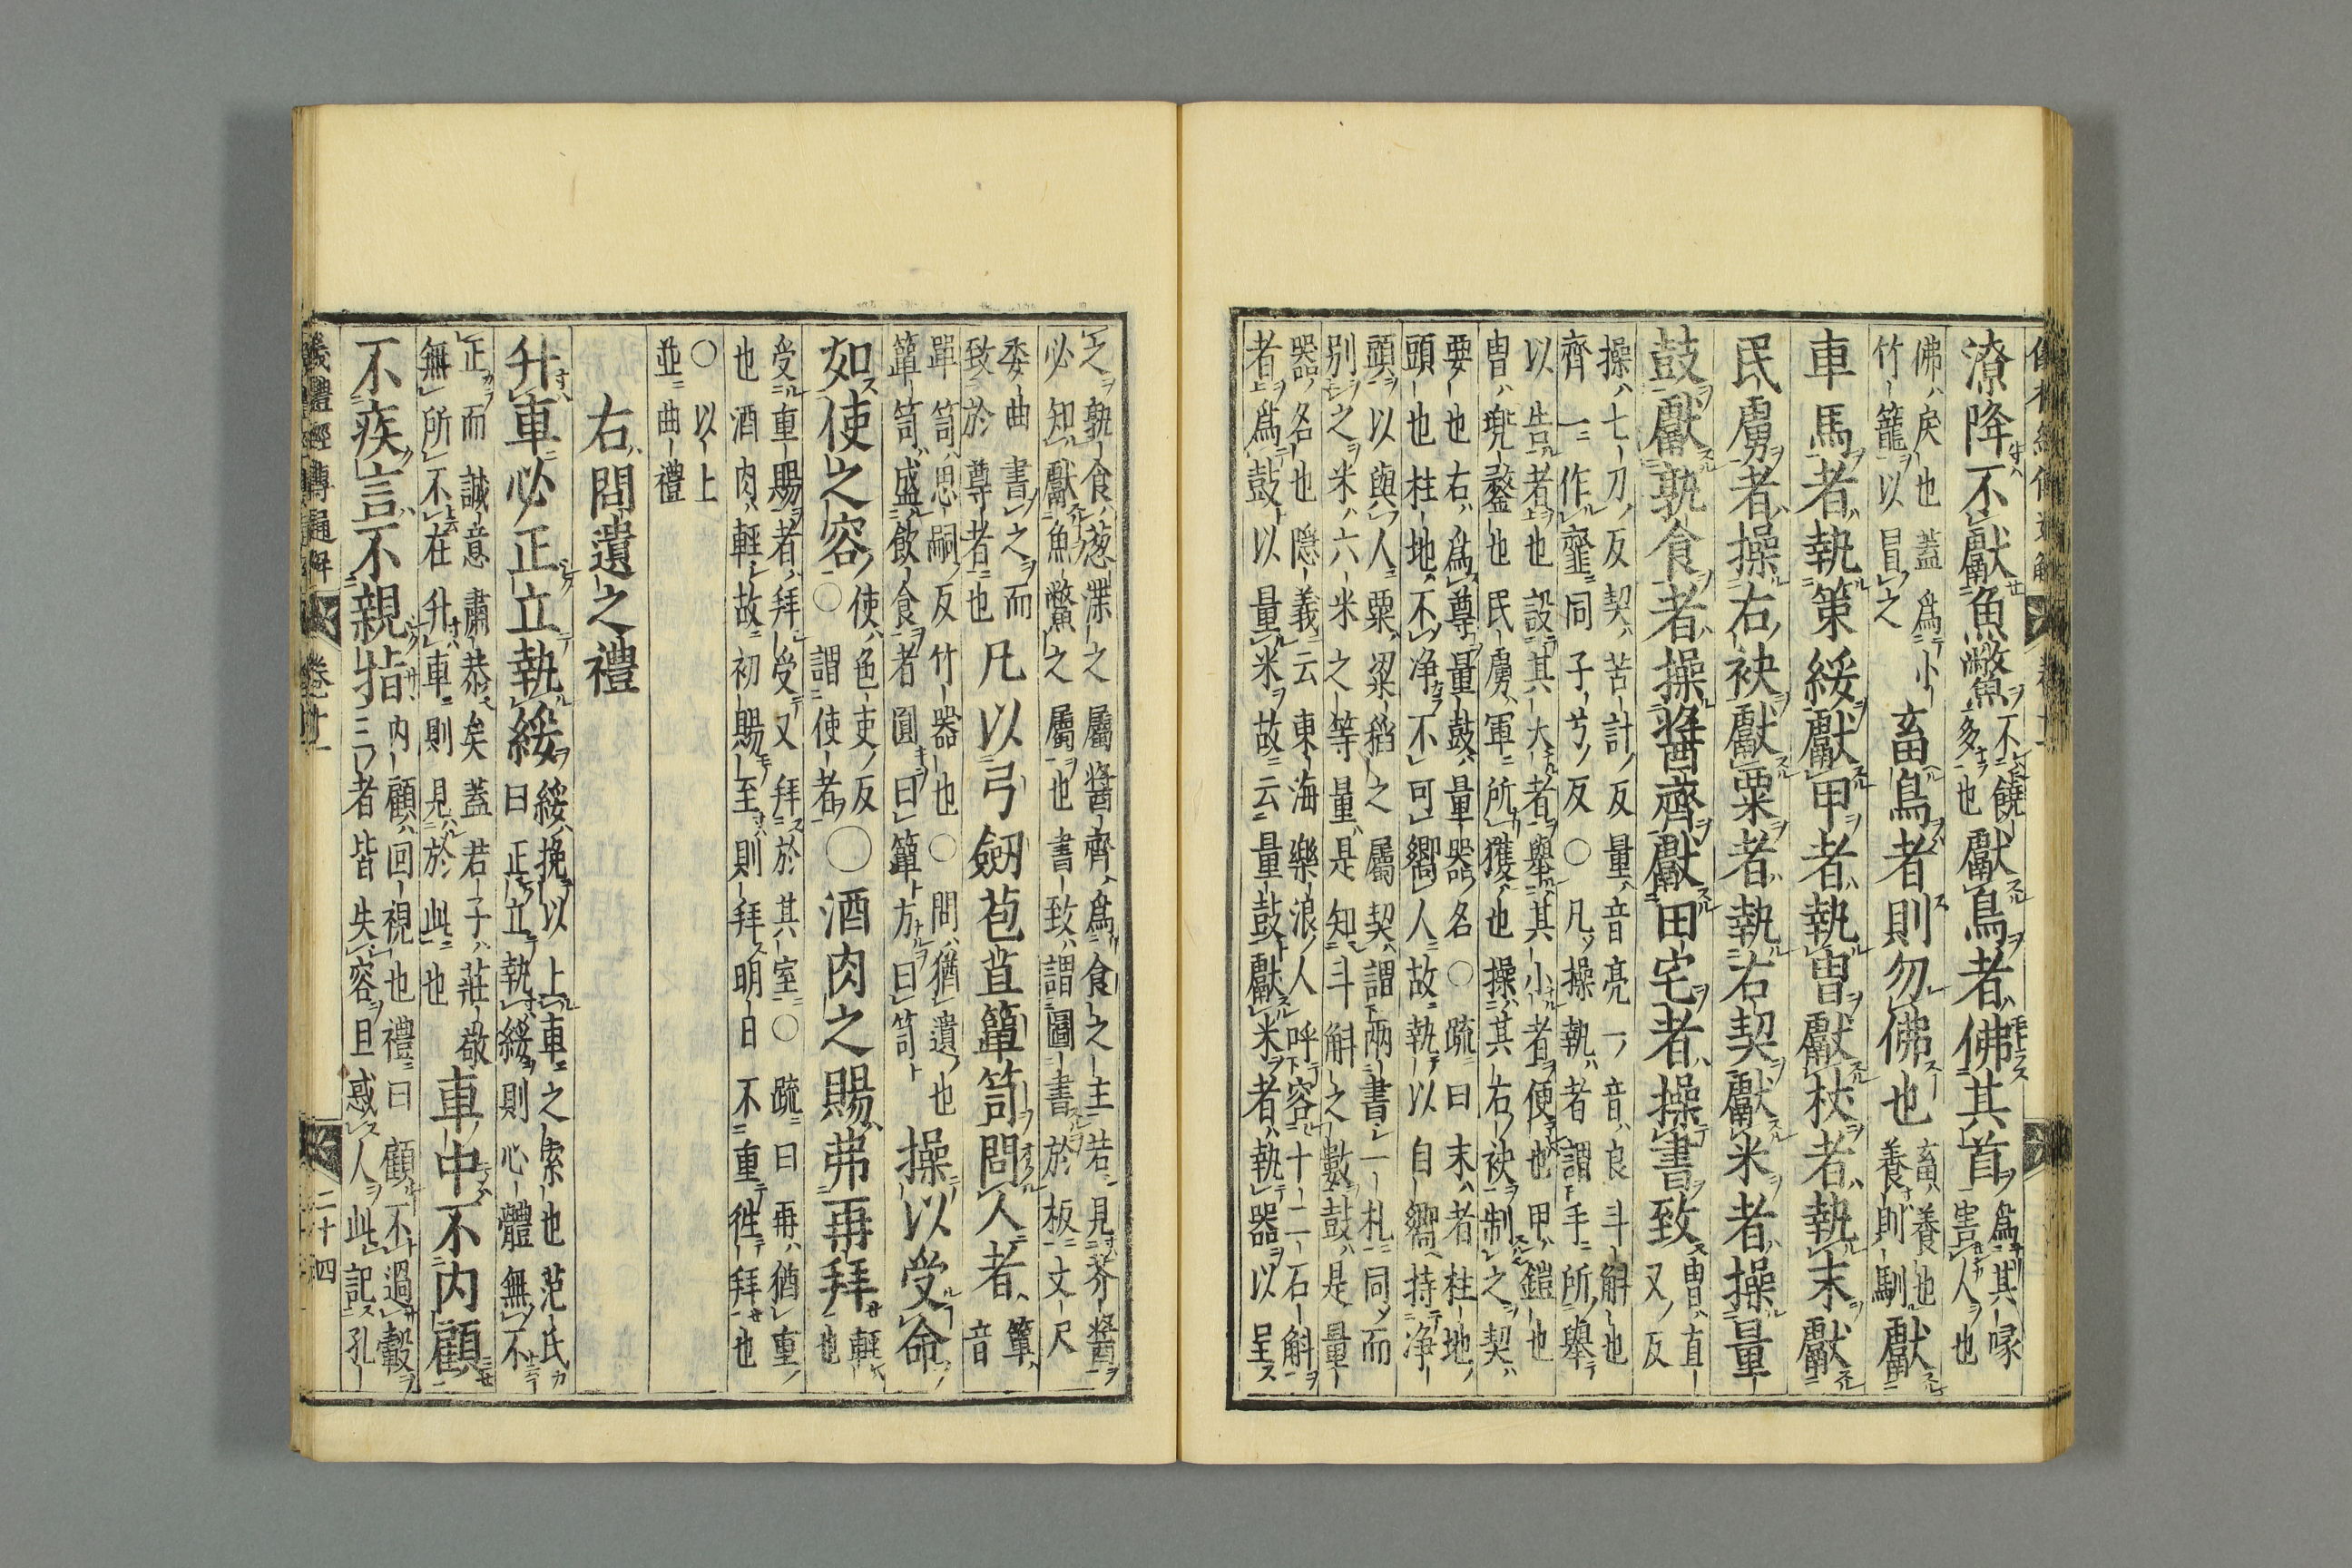 水潦降不獻魚鼈不饒多也獻鳥者佛其首為其喙害人也
佛戾也蓋為小竹籠以冒之畜鳥者則勿佛也畜養也養則馴獻
車馬者執策綏獻甲者執冑獻杖者執末獻
民虜者操右袂獻粟者執右契獻米者操量
鼓獻孰食者操醬齊獻田宅者操書致冑直又反
操七刀反契苦計反量音亮一音良斗斛也
齊一作韲同子兮反〇凡操執者謂手所舉
以告者也設其大者舉其小者便也甲鎧也
冑兜鍪也民虜軍所獲也操其右袂制之契
要也右為尊量鼓量器名〇疏曰末者柱地
頭也柱地不淨不可嚮人故執以自嚮持淨
頭以與人粟粱稻之屬契謂兩書一札同而
別之米六米之等量是知斗斛之數鼓是量
器名也隱義云東海樂浪人呼容十二石斛
者為鼓以量米故云量鼓獻米者執器以呈
之孰食葱渫之屬醬齊為食之主若見芥醬
必知獻魚鱉之屬也書致謂圖書於板丈尺
委曲書之而致於尊者也凡以弓劒苞苴簞笥問人者簞音
單笥思嗣反竹器也〇問猶遺也
簞笥盛飲食者圓曰簞方曰笥操以受命
如使之容使色吏反〇謂使者〇酒肉之賜弗再拜輕也
受重賜者拜受又拜於其室〇疏曰再猶重
也酒肉輕故初賜至則拜明日不重往拜也
〇以上
並曲禮
右問遺之禮
升車必正立執綏綏挽以上車之索也范氏曰正立執綏則心體無不
正而誠意肅恭矣蓋君子莊敬
無所不在升車則見於此也車中不內顧
不疾言不親指內顧回視也禮曰顧不過轂
三者皆失容且惑人此記孔
儀禮經傳通解
卷十一
二十四